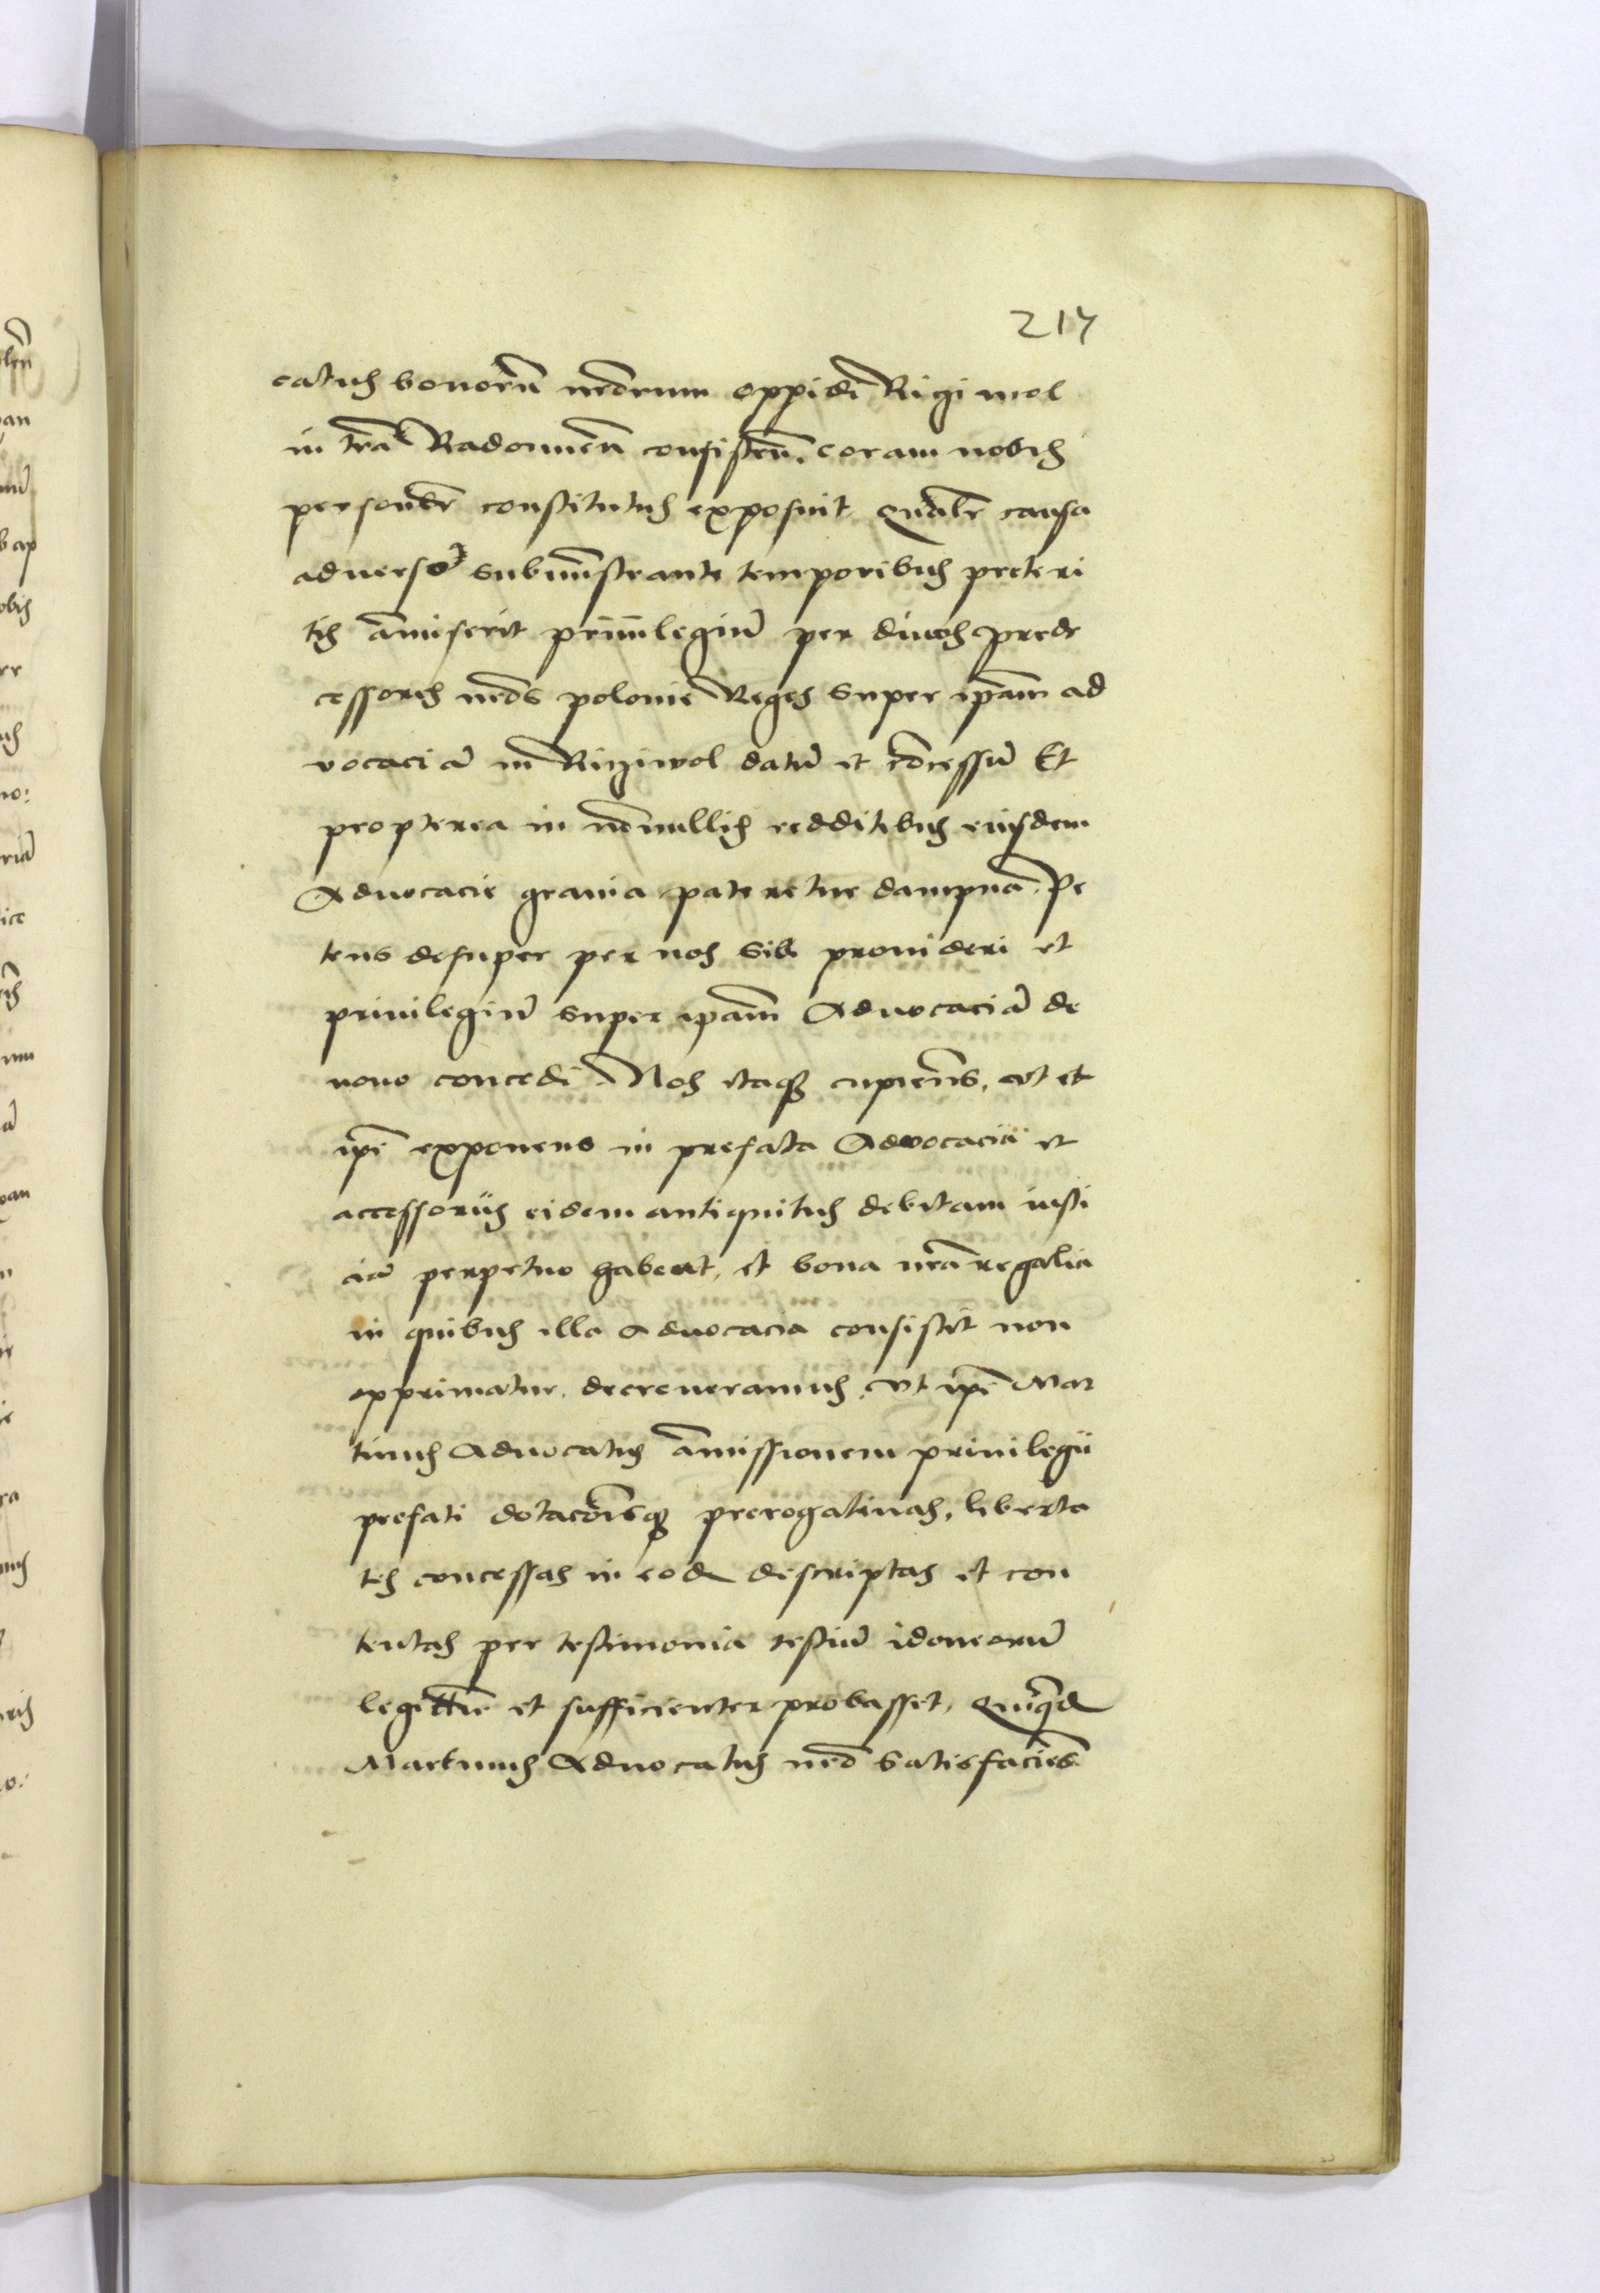 217
catus bonorū nrorum oppidi Rigiwol
in trā Radomieñ consisteñ. coram nobis
personalr constitutus exposuit. Qualr causa
adverso subministrante temporibus preteri
tis āmiserit privilegiū per divos prede
cessores nros polonie Reges super ipam ad
vocaciā in Riziwol datū et cōcessū Et
propterea in nōnullis redditibus eiusdem
Advocacie gravia pateretur dampna. Pe
tens desuper per nos sibi provideri et
privilegiū super ipam Advocaciā de
novo concedi. Nos itaqꝫ cupientes, ut et
ipe exponens in prefata Advocacia et
accessoriis eidem antiquitus debitam iusti
ciā perpetuo habeat, et bona nrā regalia
in quibus illa Advocacia consistit non
opprimatur. decreveramus, ut ipe Mar
tinus Advocatus āmissionem privilegii
prefati dotacōisqꝫ prerogativas, liberta
tes concessas in eod descriptas et con
tentas per testimonia testiū idoneorū
legittīe et sufficienter probasset. Quiqd
Martinus Advocatus nrō satisfaciēs